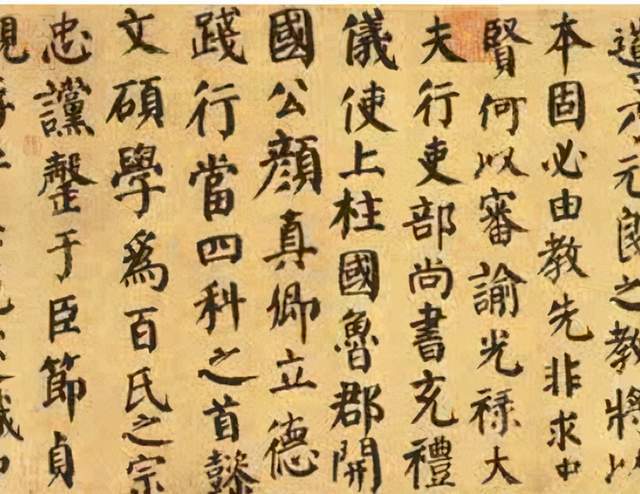 元良之教將以
本固必由教先非求
賢何以審諭光祿大
夫行吏部尚書充禮
儀使上柱國魯郡開
國公顏真卿立德
踐行當四科之首懿
文碩學爲百氏之宗
忠讜罄于臣節貞